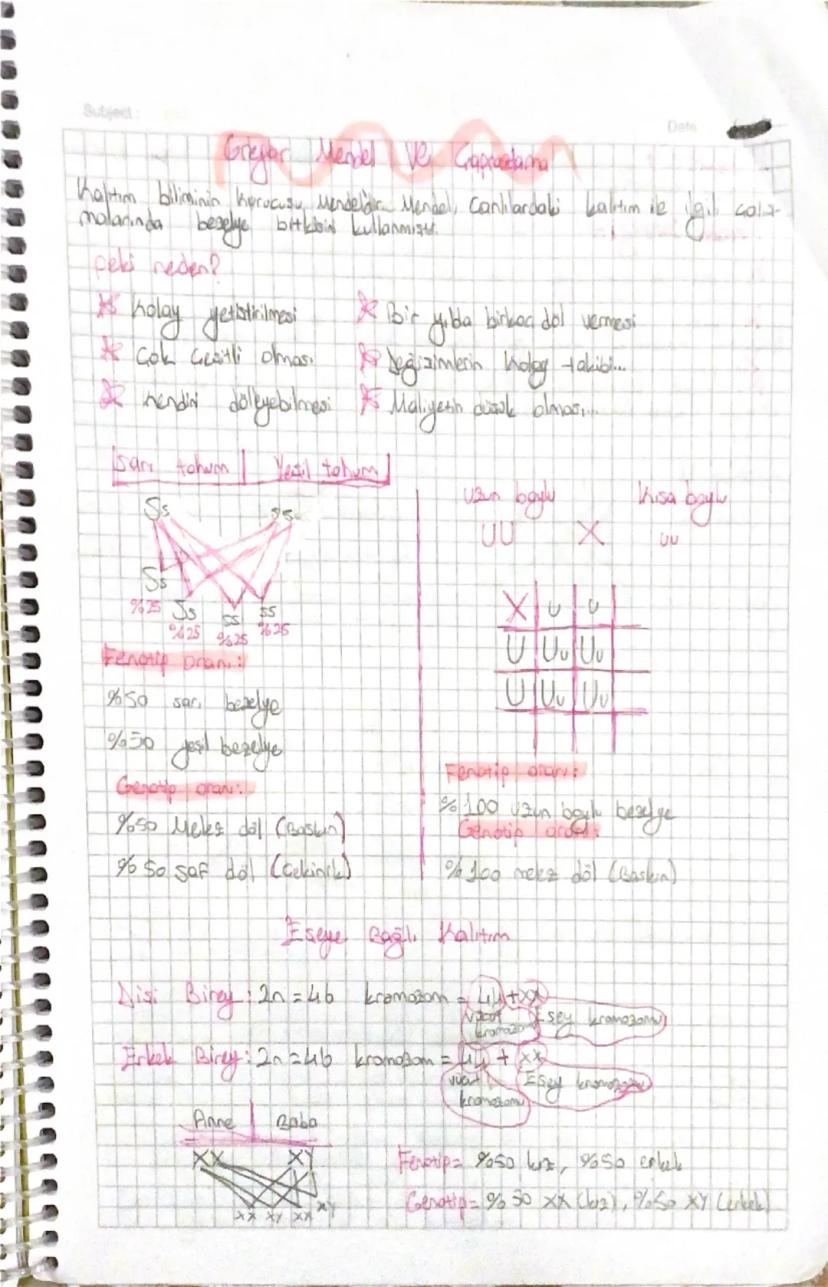 Subject:
Date
Gregor Mendel ve Çaprazlama
Kalıtım biliminin kurucusu Mendeldir. Mendel, Canlılardaki kalıtım ile ilgili çalış-
malarında bezelye bitkisini kullanmıştır.
peki neden?
* Kolay yetiştirilmesi
* Bir yılda birkaç döl vermesi
* Çok Çeşitli olması
* Değişimlerin kolay takibi...
* Kendini dölleyebilmesi
* Maliyetin düşük olması...
Sarı tohum | Yeşil tohum
Uzun boylu Kısa boylu
Ss ss
UU X uu
Ss Ss ss ss
%25 %25 %25 %25
X u u
U Uu Uu
U Uu Uu
Fenotip oranı:
%50 sarı bezelye
%50 yeşil bezelye
Genotip oranı:
%50 Melez döl (Baskın)
%50 saf döl (Çekinik)
Fenotip oranı:
%100 uzun boylu bezelye
Genotip oranı:
%100 melez döl (Baskın)
Eşeye Bağlı Kalıtım
Dişi Birey: 2n=46 kromozom = 44+XX
Vücut kromozomu Eşey kromozomu
Erkek Birey: 2n=46 kromozom = 44 + XX
vücut kromozomu Eşey kromozomu
Anne Baba
XX XY
XX XY XX XY
Fenotip= %50 kız, %50 erkek
Genotip= %50 XX (kız), %50 XY (erkek)